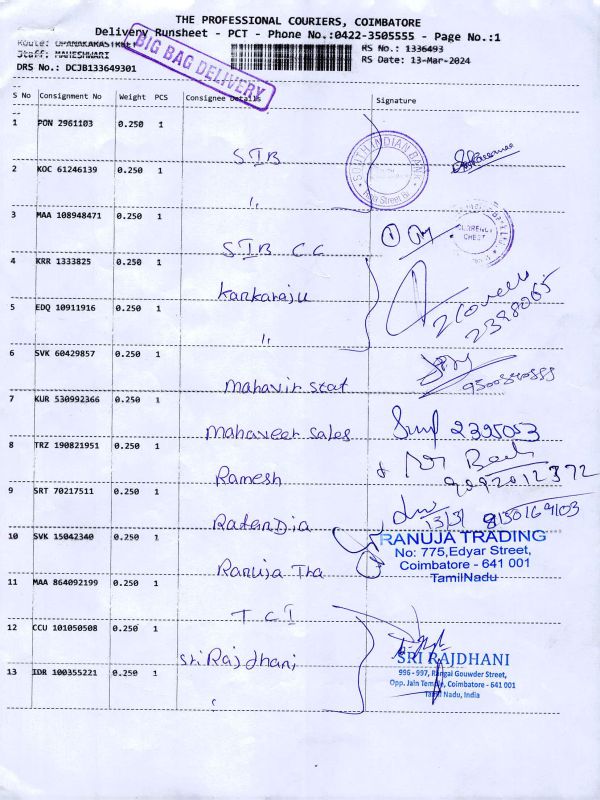 THE PROFESSIONAL COURIERS, COIMBATORE
Delivery Runsheet - PCT - Phone No.:0422-3505555 - Page No.:1
Route: OPANAKARASTREET
RS No.: 1336493
Staff: MAHESHWARI
RS Date: 13-Mar-2024
DRS No.: DCJB133649301
BIG BAG DELIVERY
S No Consignment No Weight PCS Consignee Details Signature
1 PON 2961103 0.250 1 SIB
SOUTH INDIAN BANK
2 KOC 61246139 0.250 1 "
3 MAA 108948471 0.250 1 SIB C.C
CURRENCY CHEST
4 KRR 1333825 0.250 1 Kankaraju
2398065
5 EDQ 10911916 0.250 1 "
6 SVK 60429857 0.250 1 Mahavir Stat
7 KUR 530992366 0.250 1 Mahaveer Sales
2395053
8 TRZ 190821951 0.250 1 Ramesh
9092012372
9 SRT 70217511 0.250 1 RatanDia
13/3/ 8150169103
10 SVK 15042340 0.250 1 Ranuja Tra
RANUJA TRADING
No: 775,Edyar Street,
Coimbatore - 641 001
TamilNadu
11 MAA 864092199 0.250 1 T C I
12 CCU 101050508 0.250 1 Sri Rajdhani
13 IDR 100355221 0.250 1
SRI RAJDHANI
996 - 997, Rangai Gouwder Street,
Opp. Jain Temple, Coimbatore - 641 001
Tamil Nadu, India